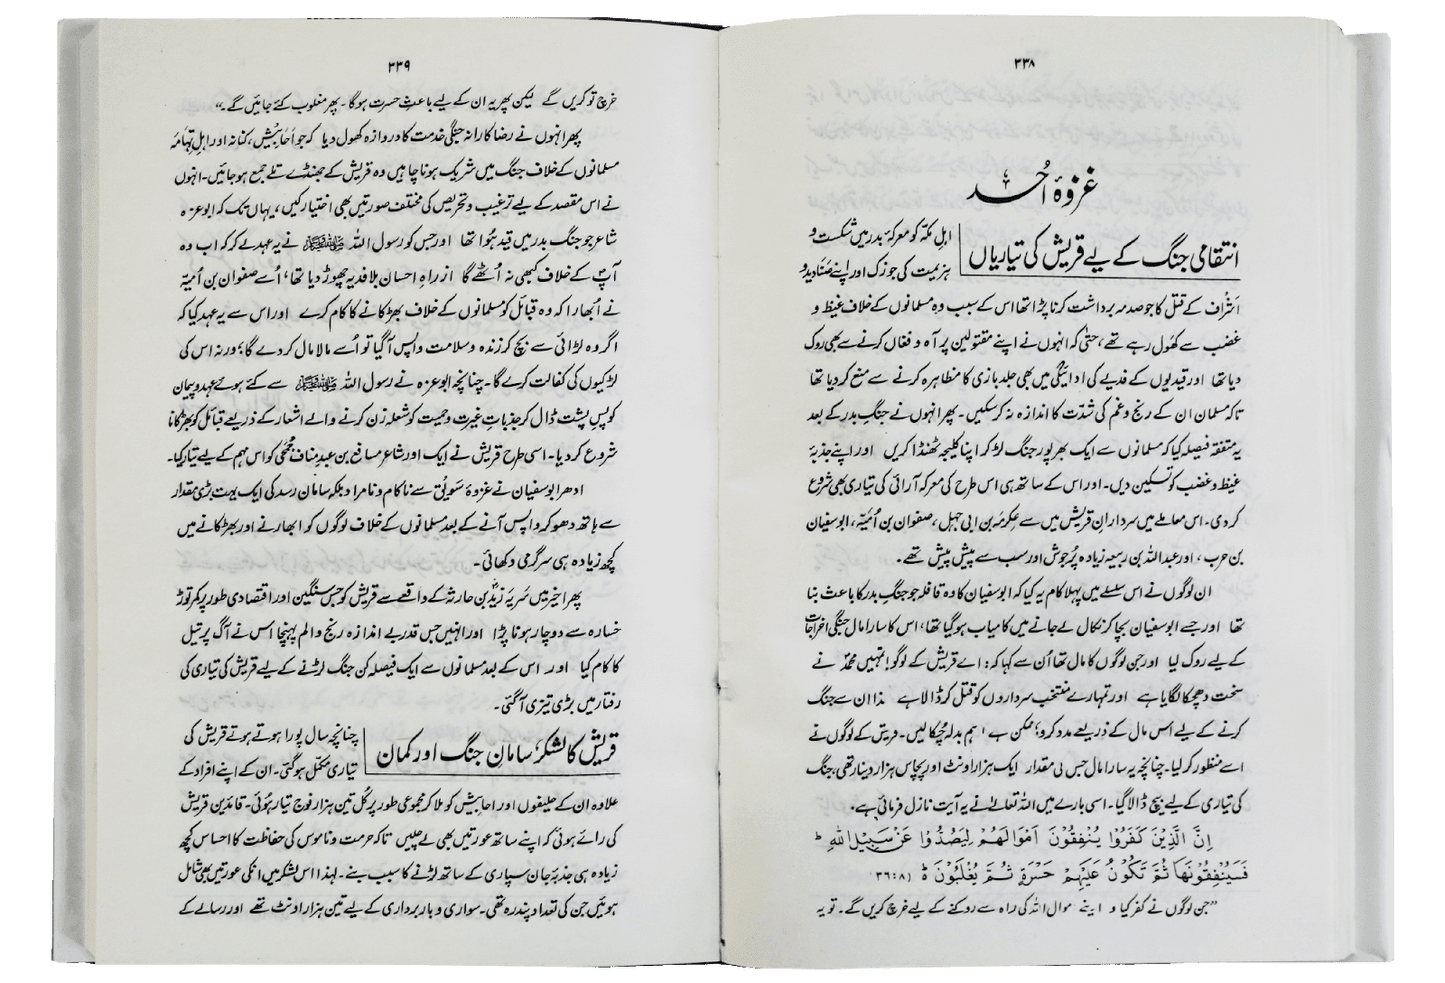 ۳۳۸
غزوۂ اُحد
انتقامی جنگ کے لیے قریش کی تیاریاں
اہلِ مکہ کو معرکۂ بدر میں شکست و
ہزیمت کی جو زک اور اپنے صَنادید و
اَشراف کے قتل کا جو صدمہ برداشت کرنا پڑا تھا اس کے سبب وہ مسلمانوں کے خلاف غیظ و
غضب سے کھول رہے تھے، حتیٰ کہ انہوں نے اپنے مقتولین پر آہ و فغاں کرنے سے بھی روک
دیا تھا اور قیدیوں کے فدیے کی ادائیگی میں بھی جلد بازی کا مظاہرہ کرنے سے منع کر دیا تھا
تاکہ مسلمان ان کے رنج و غم کی شدّت کا اندازہ نہ کر سکیں۔ پھر انہوں نے جنگِ بدر کے بعد
یہ متفقہ فیصلہ کیا کہ مسلمانوں سے ایک بھر پور جنگ لڑ کر اپنا کلیجہ ٹھنڈا کریں اور اپنے جذبۂ
غیظ و غضب کو تسکین دیں۔ اور اس کے ساتھ ہی اس طرح کی معرکہ آرائی کی تیاری بھی شروع
کر دی۔ اس معاملے میں سردارانِ قریش میں سے عِکرِمہ بن ابی جہل، صفوان بن اُمَیّہ، ابوسفیان
بن حرب، اور عبداللہ بن ربیعہ زیادہ پُرجوش اور سب سے پیش پیش تھے۔
ان لوگوں نے اس سلسلے میں پہلا کام یہ کیا کہ ابوسفیان کا وہ قافلہ جو جنگِ بدر کا باعث بنا
تھا اور جسے ابوسفیان بچا کر نکال لے جانے میں کامیاب ہو گیا تھا، اس کا سارا مال جنگی اخراجات
کے لیے روک لیا اور جن لوگوں کا مال تھا اُن سے کہا کہ: اے قریش کے لوگو! تمہیں محمدؐ نے
سخت دھچکا لگایا ہے اور تمہارے منتخب سرداروں کو قتل کر ڈالا ہے۔ لہذا ان سے جنگ
کرنے کے لیے اس مال کے ذریعے مدد کرو؛ ممکن ہے ہم بدلہ چُکا لیں۔ قریش کے لوگوں نے
اسے منظور کر لیا۔ چنانچہ یہ سارا مال جس کی مقدار ایک ہزار اونٹ اور پچاس ہزار دینار تھی، جنگ
کی تیاری کے لیے بیچ ڈالا گیا۔ اسی بارے میں اللہ تعالیٰ نے یہ آیت نازل فرمائی ہے۔
اِنَّ الَّذِیْنَ كَفَرُوْا یُنْفِقُوْنَ اَمْوَالَهُمْ لِیَصُدُّوْا عَنْ سَبِیْلِ اللّٰهِ ؕ
فَسَیُنْفِقُوْنَهَا ثُمَّ تَكُوْنُ عَلَیْهِمْ حَسْرَةً ثُمَّ یُغْلَبُوْنَ ؕ (۸:۳۶)
"جن لوگوں نے کفر کیا وہ اپنے اموال اللہ کی راہ سے روکنے کے لیے خرچ کریں گے۔ تو یہ
۳۳۹
خرچ تو کریں گے لیکن پھر یہ ان کے لیے باعثِ حسرت ہو گا۔ پھر مغلوب کئے جائیں گے۔"
پھر انہوں نے رضا کارانہ جنگی خدمت کا دروازہ کھول دیا کہ جو اَحابِیش، کنانہ اور اہلِ تِہَامَہ
مسلمانوں کے خلاف جنگ میں شریک ہونا چاہیں وہ قریش کے جھنڈے تلے جمع ہو جائیں۔ انہوں
نے اس مقصد کے لیے ترغیب و تحریص کی مختلف صورتیں بھی اختیار کیں، یہاں تک کہ ابوعزہ
شاعر جو جنگِ بدر میں قید ہُوا تھا اور جس کو رسول اللہ ﷺ نے یہ عہد لے کر کہ اب وہ
آپؐ کے خلاف کبھی نہ اُٹھے گا ازراہِ احسان بلا فدیہ چھوڑ دیا تھا، اُسے صفوان بن اُمَیّہ
نے اُبھارا کہ وہ قبائل کو مسلمانوں کے خلاف بھڑکانے کا کام کرے اور اس سے یہ عہد کیا کہ
اگر وہ لڑائی سے بچ کر زندہ و سلامت واپس آ گیا تو اُسے مالا مال کر دے گا؛ ورنہ اس کی
لڑکیوں کی کفالت کرے گا۔ چنانچہ ابوعزہ نے رسول اللہ ﷺ سے کئے ہوئے عہد و پیمان
کو پسِ پشت ڈال کر جذباتِ غیرت و حمیت کو شعلہ زن کرنے والے اشعار کے ذریعے قبائل کو بھڑکانا
شروع کر دیا۔ اسی طرح قریش نے ایک اور شاعر مسافع بن عبدِمناف جُمحی کو اس مہم کے لیے تیار کیا۔
ادھر ابوسفیان نے غزوۂ سَویق سے ناکام و نامراد بلکہ سامانِ رسد کی ایک بہت بڑی مقدار
سے ہاتھ دھو کر واپس آنے کے بعد مسلمانوں کے خلاف لوگوں کو ابھارنے اور بھڑکانے میں
کچھ زیادہ ہی سرگرمی دکھائی۔
پھر اخیر میں سَرِیّۂ زیدؓ بن حارثہ کے واقعے سے قریش کو جس سنگین اور اقتصادی طور پر کمر توڑ
خسارہ سے دوچار ہونا پڑا اور انہیں جس قدر بے اندازہ رنج و الم پہنچا اس نے آگ پر تیل
کا کام کیا اور اس کے بعد مسلمانوں سے ایک فیصلہ کن جنگ لڑنے کے لیے قریش کی تیاری کی
رفتار میں بڑی تیزی آ گئی۔
قریش کا لشکر، سامانِ جنگ اور کمان
چنانچہ سال پورا ہوتے ہوتے قریش کی
تیاری مکمّل ہو گئی۔ ان کے اپنے افراد کے
علاوہ ان کے حلیفوں اور احابیش کو ملا کر مجموعی طور پر کُل تین ہزار فوج تیار ہُوئی۔ قائدینِ قریش
کی رائے ہوئی کہ اپنے ساتھ عورتیں بھی لے چلیں تاکہ حرمت و ناموس کی حفاظت کا احساس کچھ
زیادہ ہی جذبۂ جان سپاری کے ساتھ لڑنے کا سبب بنے۔ لہذا اس لشکر میں انکی عورتیں بھی شامل
ہوئیں جن کی تعداد پندرہ تھی۔ سواری و بار برداری کے لیے تین ہزار اونٹ تھے اور رسالے کے